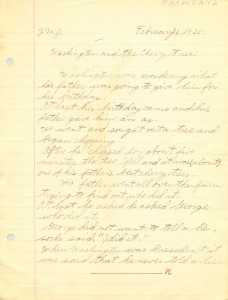 J.M.J.
February 26, 1925
Washington and the Cherry Tree
Washington was wondering what
his father was going to give him for
his birthday.
At last his birthday came and his
father gave him an ax.
He went and sought out a tree and
began chopping.
After he chopped for about five
minutes the tree fell and it was
one of his father's best cherry trees.
His father went all over the farm
trying to find out who did it.
At last he asked he asked George
who did it.
George did not want to tell a lie,
so he said "I did it."
When Washington was President it
was said that he never told a lie.